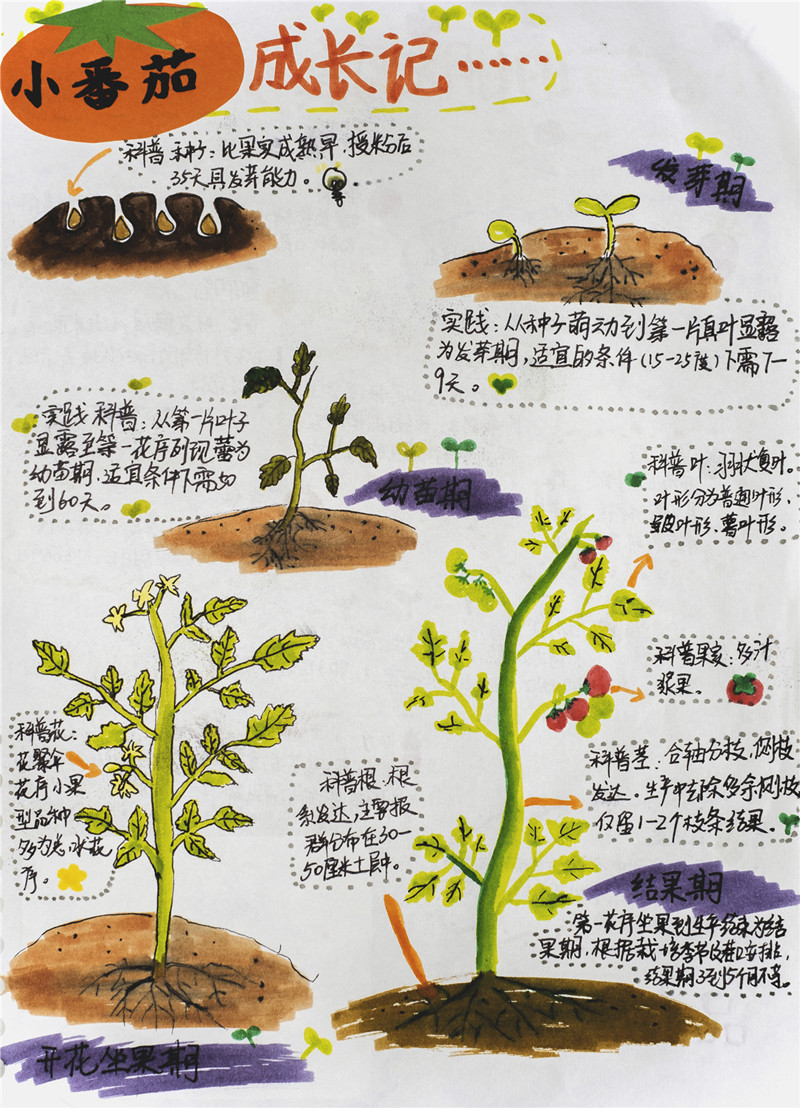 小番茄
成长记……
科普种子：比果实成熟早，授粉后
35天具发芽能力。
发芽期
实践：从种子萌动到第一片真叶显露
为发芽期，适宜的条件（15-25度）下需7-
9天。
实践科普：从第一片叶子
显露至第一花序列现蕾为
幼苗期，适宜条件下需
到60天。
幼苗期
科普叶：羽状复叶。
叶形分为普通叶形，
皱叶形、薯叶形。
科普果实：多汁
浆果。
科普花：
花聚伞
花序小果
型品种
多为总状花
序。
科普根：根
系发达，主要根
群分布在30-
50厘米土层中。
科普茎：合轴分枝，侧枝
发达。生产中去除多余侧枝
仅留1-2个枝条结果。
结果期
第一花序坐果到生产结束为结
果期，根据栽培季节及茬口安排，
结果期3到5个月不等。
开花坐果期